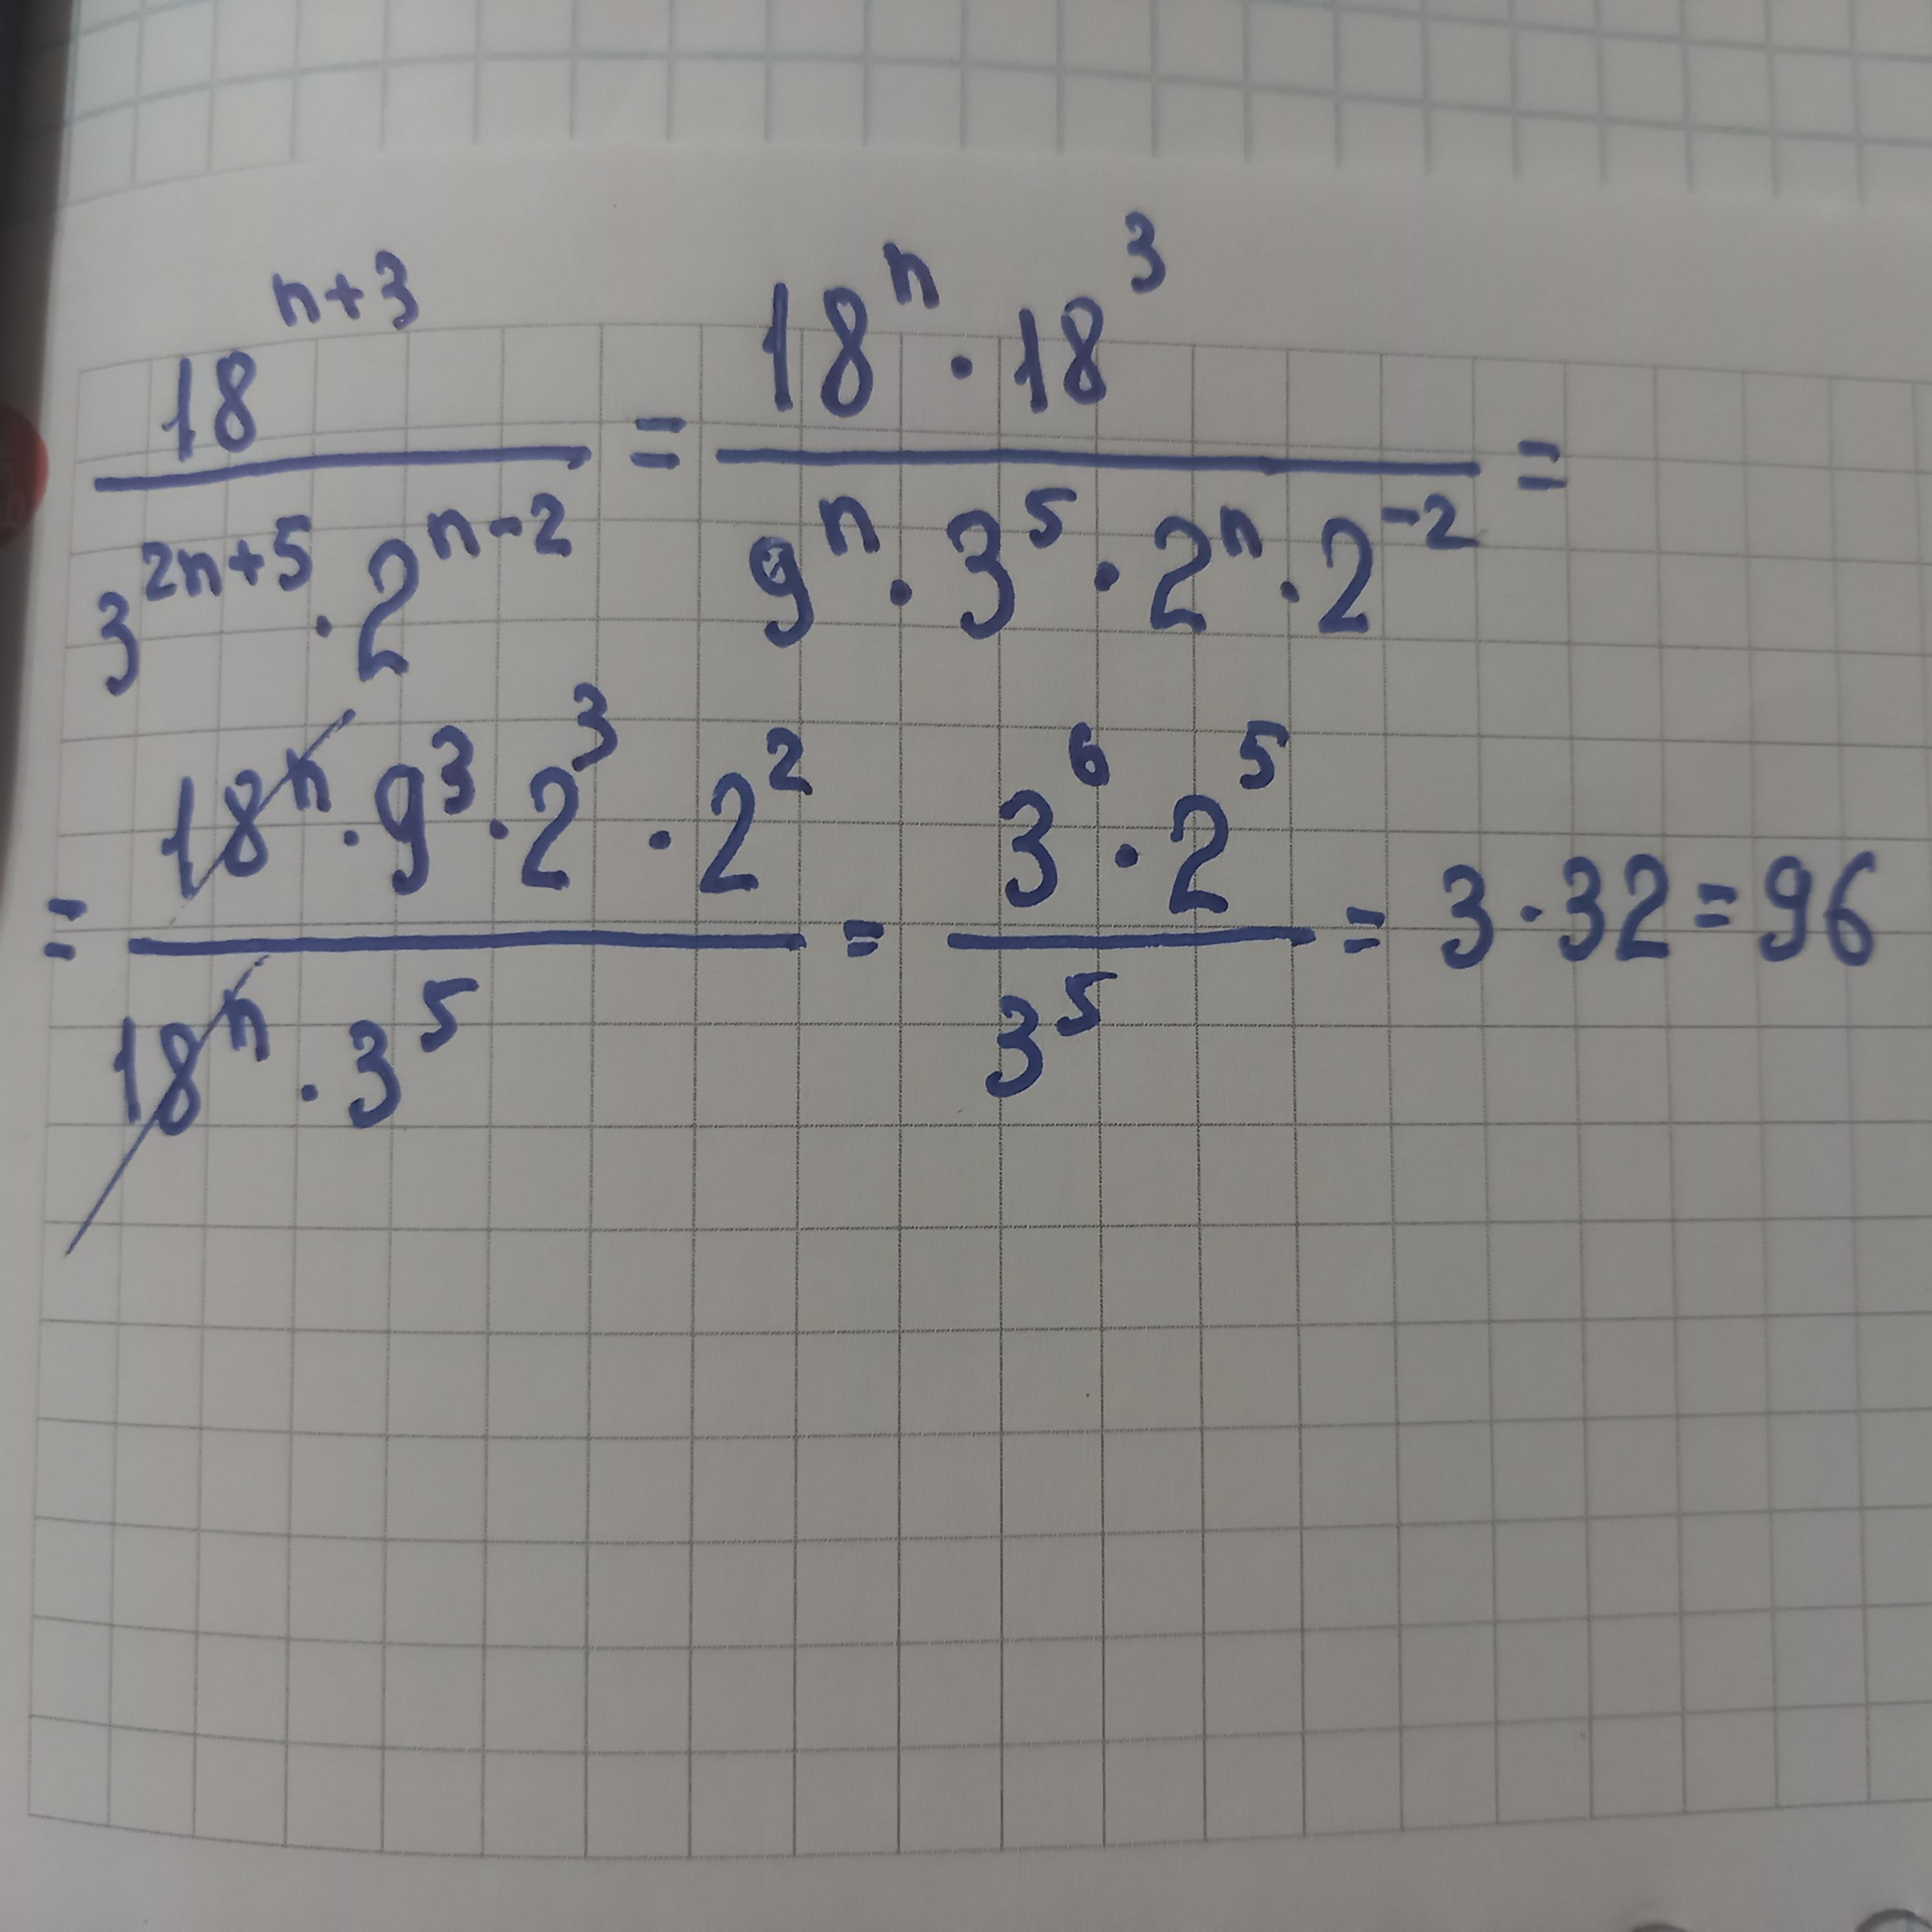 18^{n+3} / (3^{2n+5} · 2^{n-2}) = (18^n · 18^3) / (9^n · 3^5 · 2^n · 2^{-2}) =
= (18^n · 9^3 · 2^3 · 2^2) / (18^n · 3^5) = (3^6 · 2^5) / 3^5 = 3 · 32 = 96